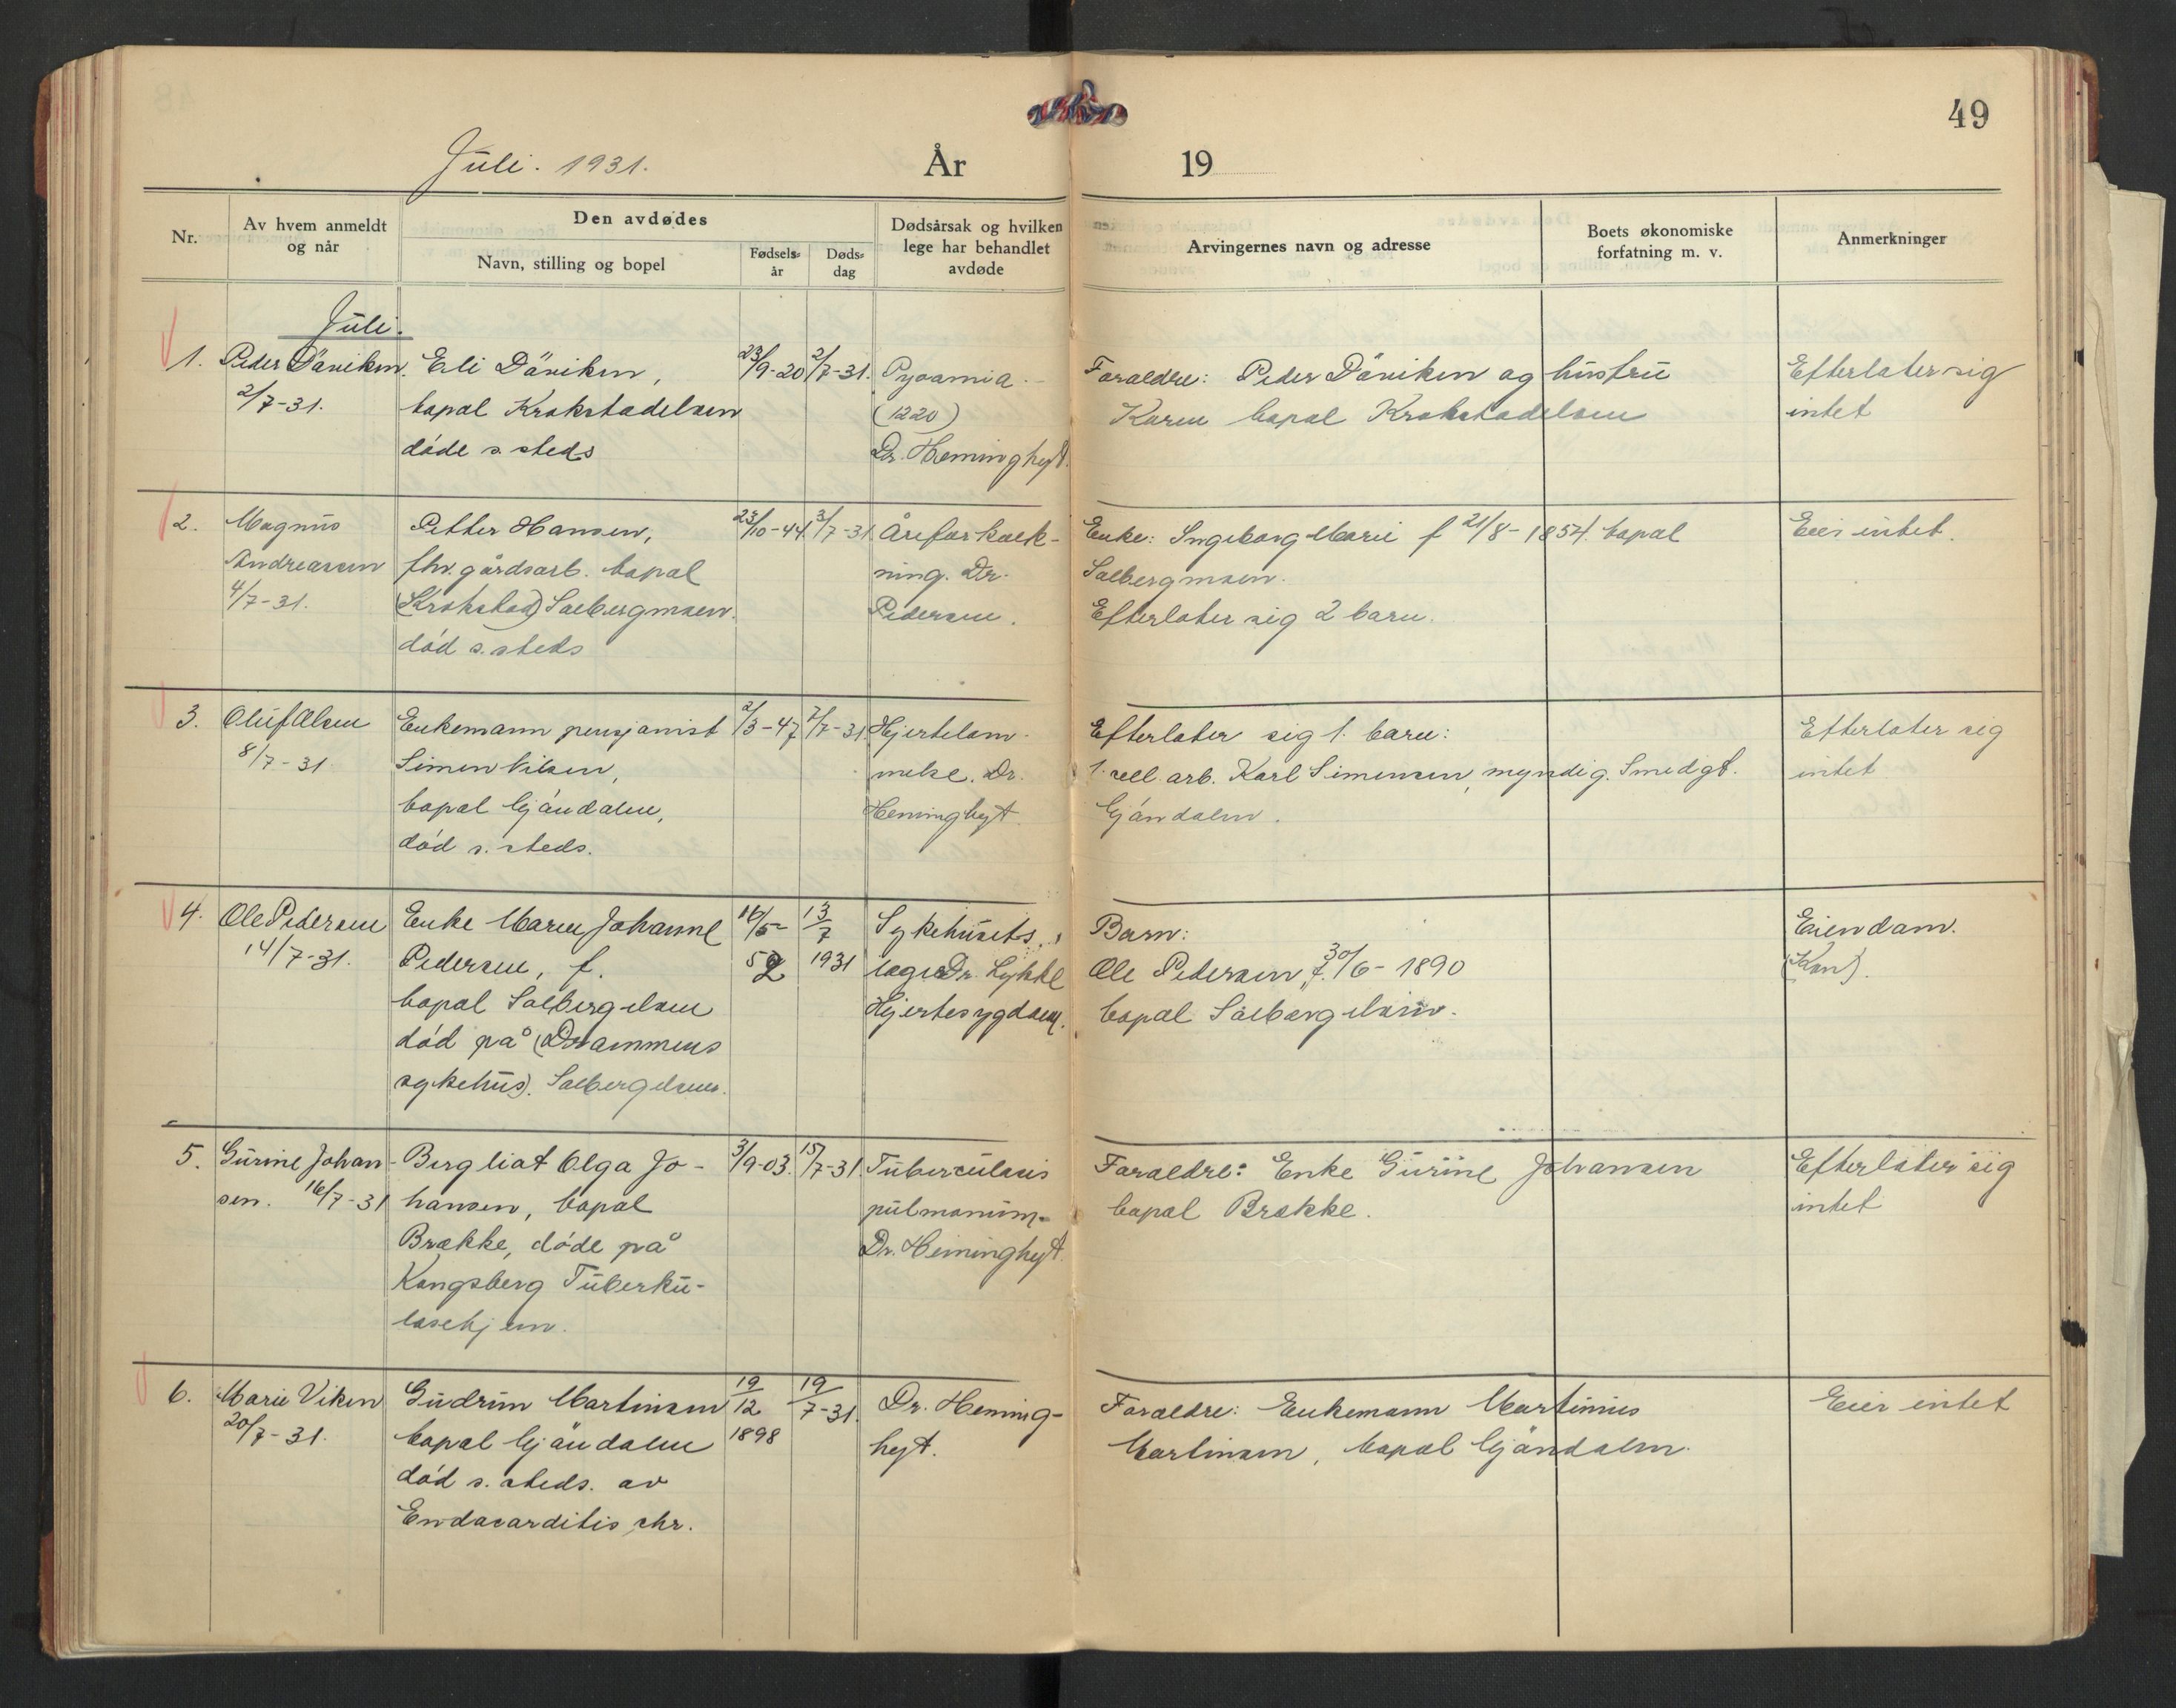 49
Juli. 1931. År 19
Nr.
Av hvem anmeldt og når
Den avdødes
Navn, stilling og bopel
Fødselsår
Dødsdag
Dødsårsak og hvilken lege har behandlet avdøde
Arvingernes navn og adresse
Boets økonomiske forfatning m. v.
Anmerkninger
Juli.
1. Peder Däniken.
2/7-31.
Eli Däniken,
bopæl Krokstadelven
døde s. steds
23/9-20
2/7-31.
Pyoamia.
(1220)
Dr. Heminghyt.
Foraldre: Peder Däniken og hustru
Karen bopæl Krokstadelven
Efterlater sig
intet
2. Magnus
Andreasen
4/7-31.
Petter Hansen,
fhv. gårdsarb. bopæl
(Krokstad) Solbergmoen.
død s. steds
23/10-44
3/7-31
Åreforkalk-
ning. Dr.
Pedersen.
Enke: Ingeborg Marie f 21/8-1854. bopæl
Solbergmoen.
Efterlater sig 2 barn.
Eier intet.
3. Oluf Olsen
8/7-31
Enkemann pensjonist
Simen Nilsen,
bopæl Gjøndalen,
død s. steds.
2/3-47
7/7-31
Hjertelam-
melse. Dr.
Heminghyt.
Efterlater sig 1. barn:
1. cell. arb. Karl Simensen, myndig. Smedgt.
Gjøndalen.
Efterlater sig
intet
4. Ole Pedersen
14/7-31.
Enke Maren Johanne
Pedersen, f.
bopæl Solbergelven
død på (Drammens
sykehus). Solbergelven.
16/5-
52
13/7
1931
Sykehusets
læge Dr. Lykke
Hjertesygdom.
Barn:
Ole Pedersen, f. 30/6-1890
bopæl Solbergelven.
Eiendom.
5. Gurine Johan-
sen. 16/7-31
Bergliot Olga Jo-
hansen, bopæl
Brække, døde på
Kongsberg Tuberku-
losehjem.
3/9-03.
15/7-31.
Tuberculosis
pulmonum-
Dr. Heminghyt.
Foraldre: Enke Gurine Johansen
bopæl Brække.
Efterlater sig
intet
6. Marie Viken
20/7-31.
Gudrun Martinsen
bopæl Gjøndalen
død s. steds. av
Endocarditis chr.
19/12
1898
19/7-31.
Dr. Heming-
hyt.
Foraldre: Enkemann Martinius
Martinsen, bopæl Gjøndalen.
Eier intet